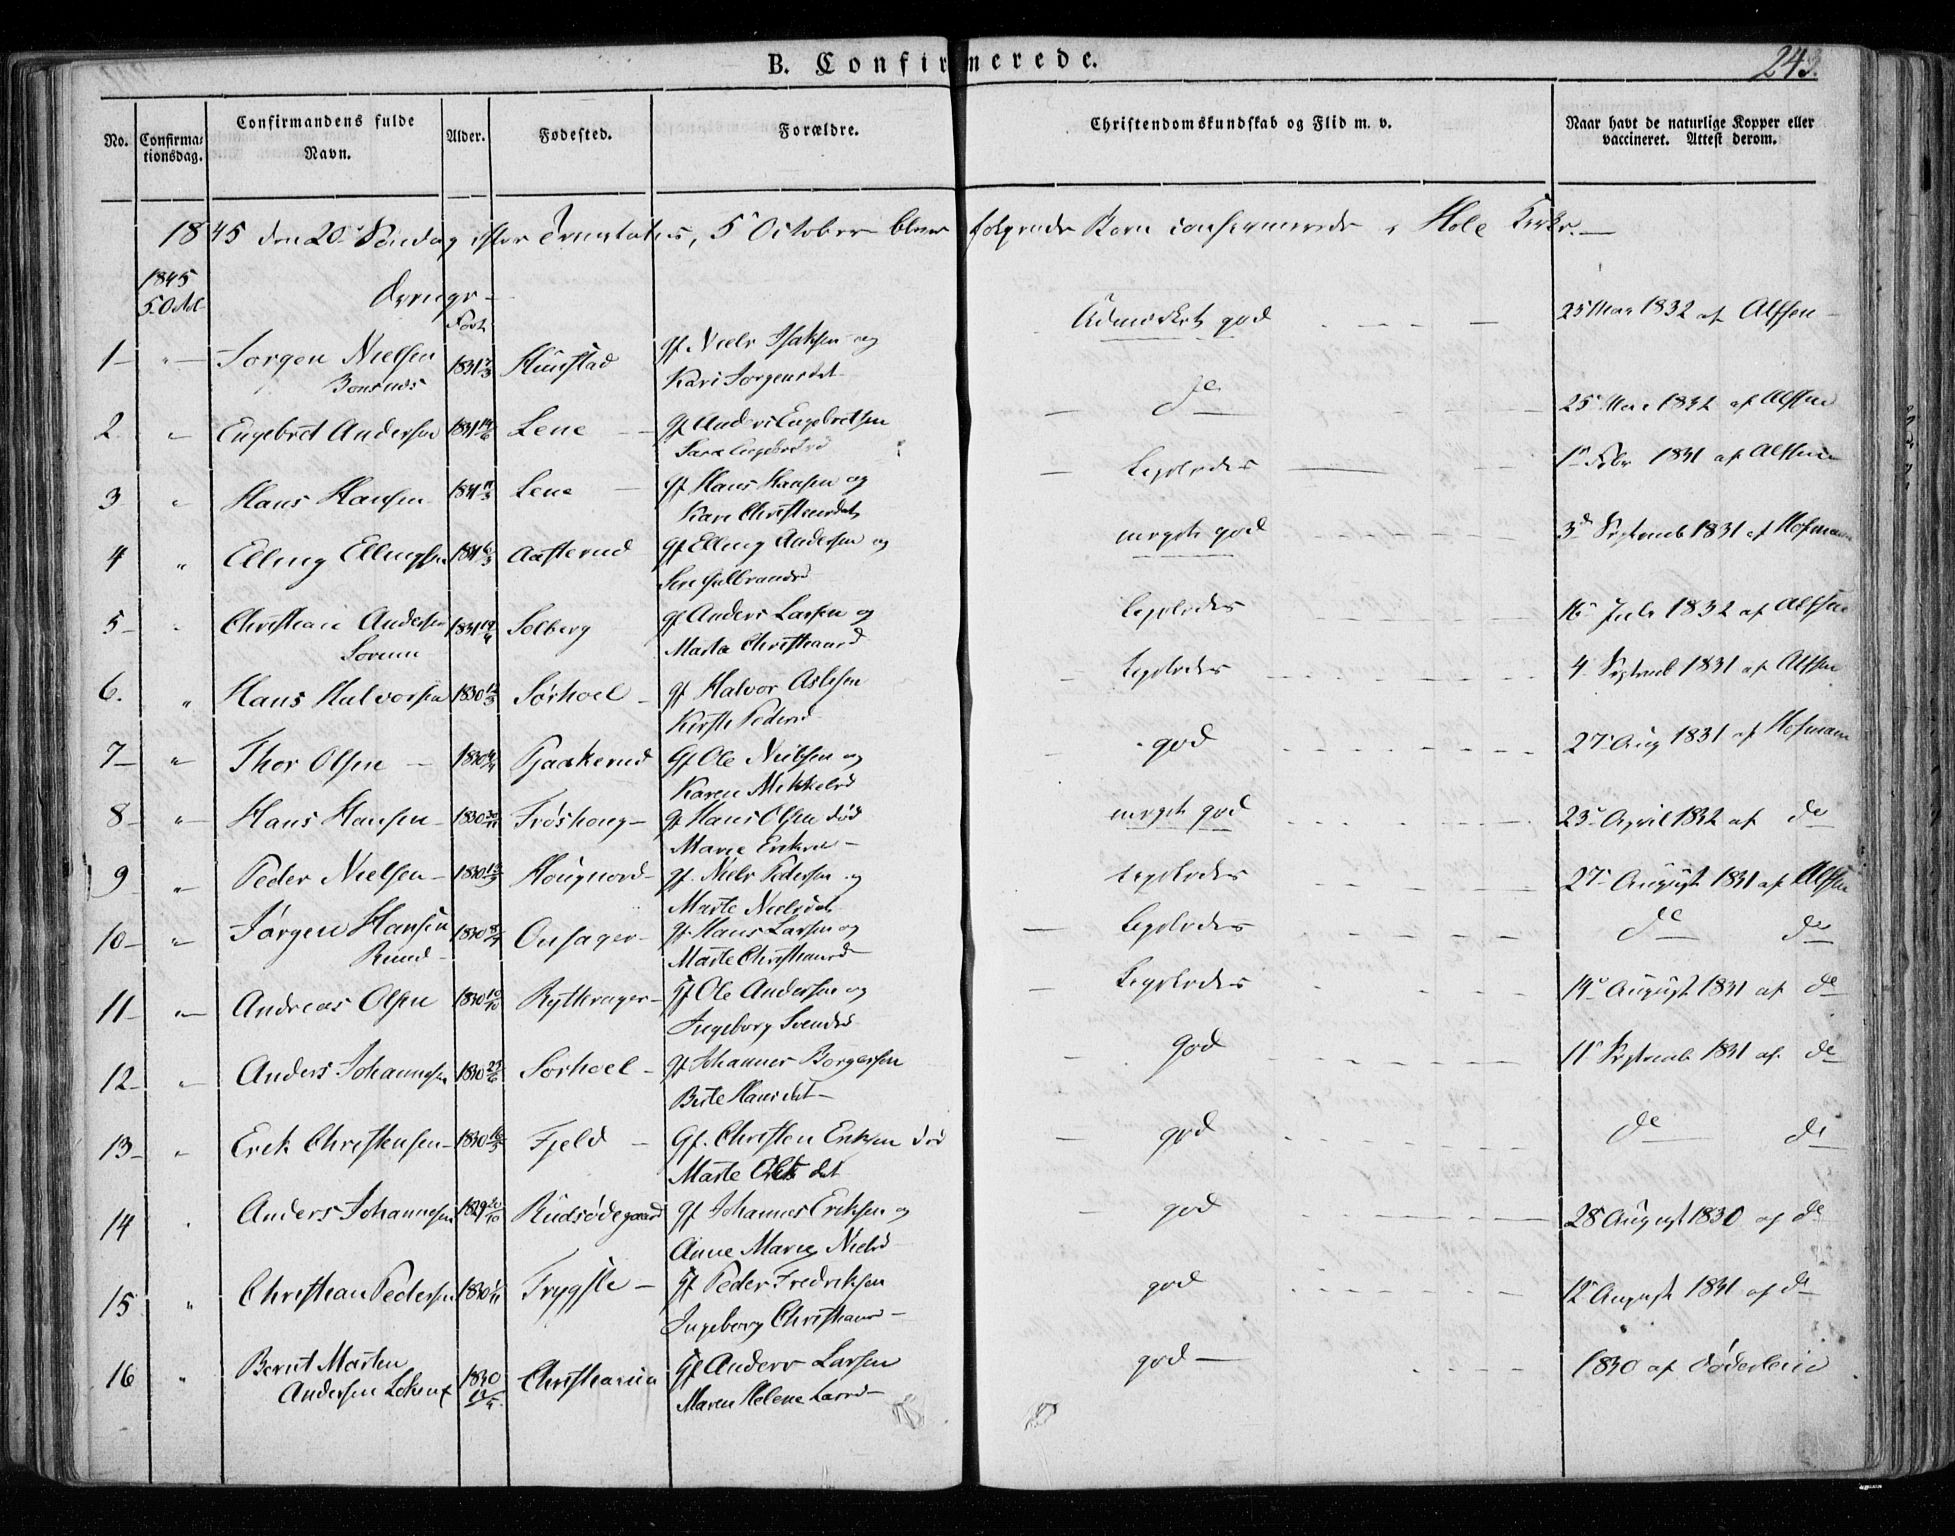 B. Confirmerede.
243.
No.
Confirma-
tionsdag.
Confirmandens fulde
Navn.
Alder.
Fødested.
Forældre.
Christendomskundskab og Flid m. v.
Naar havt de naturlige Kopper eller
vaccineret. Attest derom.
1845 den 20de Søndag efter Trinitatis, 5 October blev følgende Børn confirmerede i Hole Kirke.
1845
5 Oct
Drenge
Født
1 Jørgen Nielsen 1831 Gf Niels Isaksen og Udmærket god 25 Mai 1832 af Alfsen
Bønsnæs Kari Jørgensdat
2. Engebret Andersen 1831 Lene Gf Anders Engebretsen do 25 Mai 1832 af Alfsen
3 Hans Hansen 1831 Lene Gf Hans Hansen og ligeledes 1831 af Alfsen
Kari Christensdat
4 Elling Ellingsen 1831 Aasterud Gf Elling Andersen og meget god 3d Septemb 1831 af Hofmann
Siri Gulbrandsd
5 Christian Andersen 1831 Solberg Gf Anders Larsen og ligeledes 16 Juli 1832 af Alfsen
Sørum Marta Christiansd
6. Hans Halvorsen 1830 Sørhoel Gf Halvor Aslesen ligeledes 4 Septemb 1831 af Alfsen
Kirsti Pedersd
7 Thor Olsen 1830 Gf Ole Nielsen og god 27 Aug 1831 af Hofmann
Karen Mikkelsd
8 Hans Hansen 1830 Frøshoug Gf Hans Olsen død meget god 23 April 1832 af do
Marie Eriksd
9 Peder Nielsen 1830 Gf Niels Pedersen og ligeledes 27 August 1831 af Alfsen
Marte Nielsdat
10 Jørgen Hansen 1830 Onsager Gf Hans Larsen og ligeledes do do
Rund Marte Christiansd
11 Andreas Olsen 1830 Rytterager Gf Ole Andersen og ligeledes 14 August 1831 af do
Ingeborg Svendsd
12 Anders Johannesen 1830 Sørhoel Gf Johannes Borgersen God 11 Septemb 1831 af do
Berte Hansdat
13 Erik Christensen 1830 Fjeld Gf. Christen Eriksen død god do do
Marte Olsdat
14 Anders Johannesen 1829 Rudsødegaard Gf Johannes Eriksen og god 28 August 1830 af do
Anne Marie Nielsd
15 Christian Pedersen 1830 Frygsle Gf Peder Fredriksen god 12 August 1831 af do
Ingeborg Christiansd
16 Bernt Marten 1830 Christiania Gf Anders Larsen god 1830 af Døderlein
Andersen Maren Helene Larsd